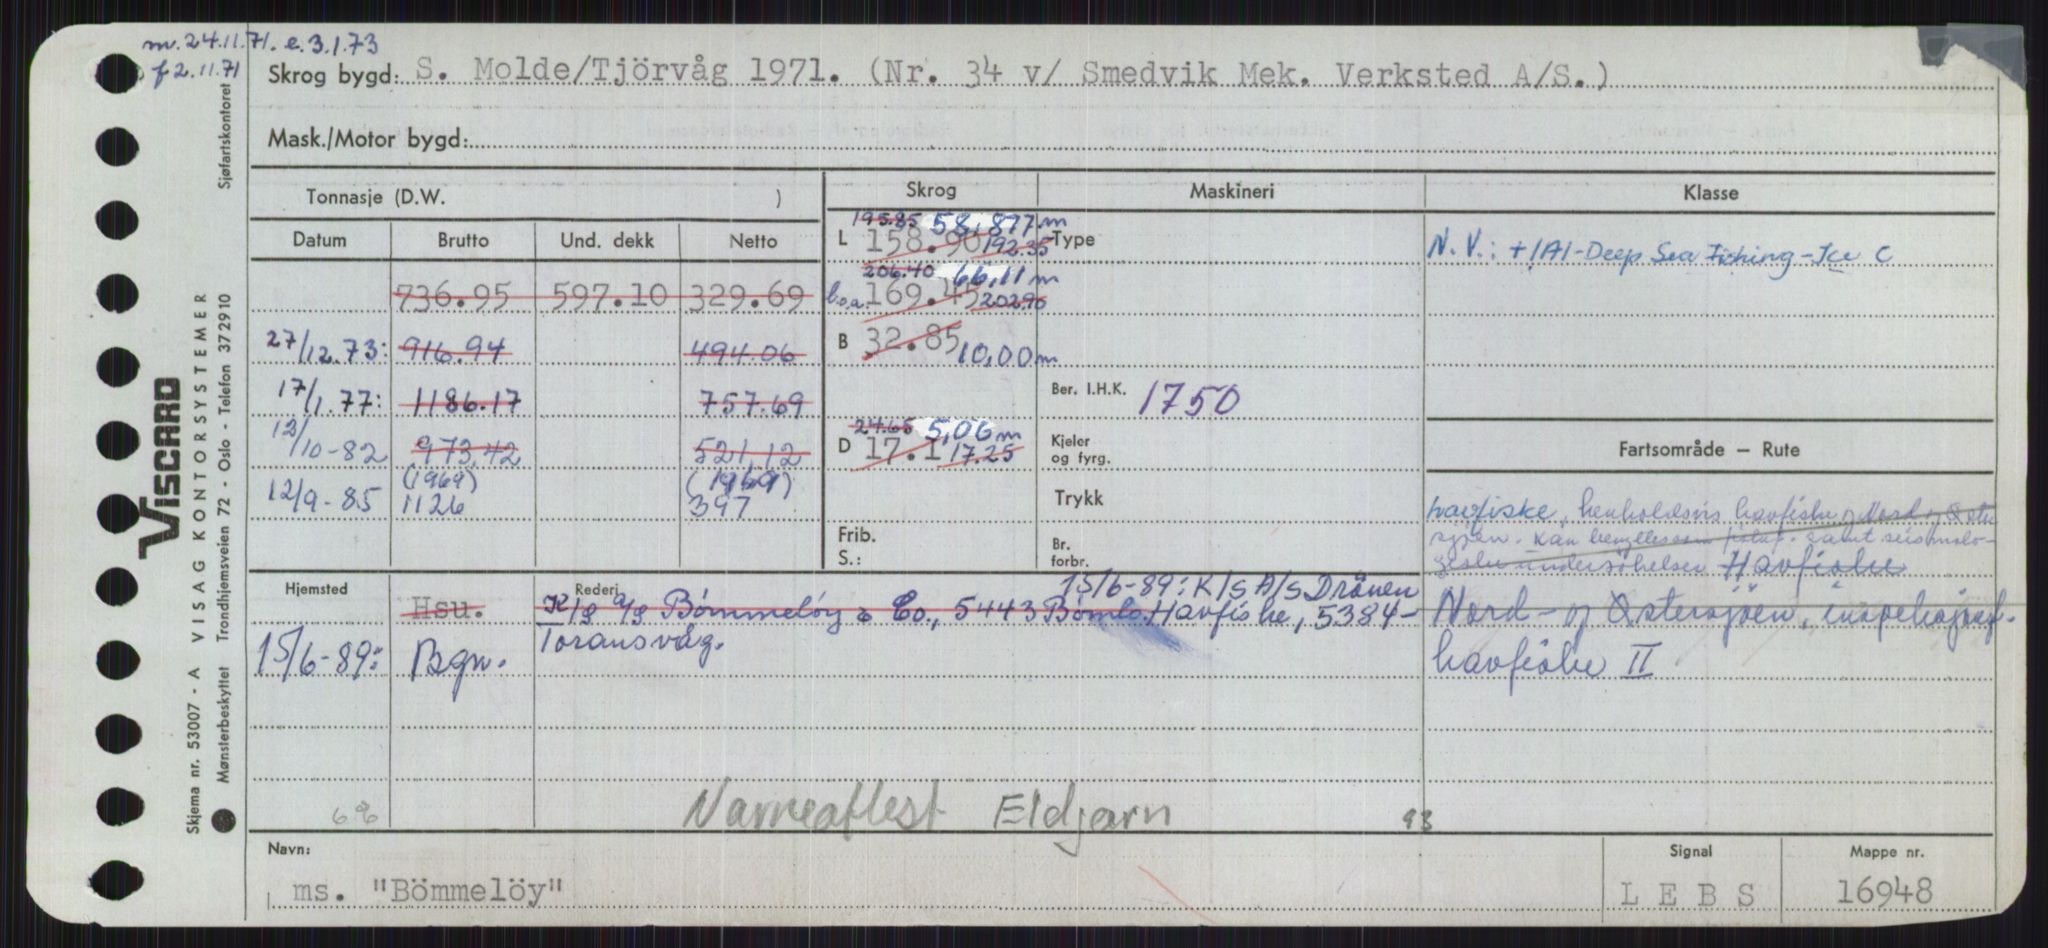 m. 24.11.71. e. 3.1.73
f 2.11.71
Skrog bygd: S. Molde/Tjörvåg 1971. (Nr. 34 v/ Smedvik Mek. Verksted A/S.)
Mask./Motor bygd:
Tonnasje (D.W. )
Skrog Maskineri Klasse
Datum Brutto Und. dekk Netto
195.85 58,877 m
L 158.90 192.35 Type
N.V.: +1A1-Deep Sea Fishing-Ice C
206.40 66,11 m
736.95 597.10 329.69
l.o.a. 169.45 202.90
27/12.73: 916.94 494.06
B 32.85 10,00 m
17/1.77: 1186.17 757.69
Ber. I.H.K. 1750
24.65 5,06 m
12/10-82 973,42 521,12
D 17.1 17.25
Kjeler og fyrg.
Fartsområde — Rute
(1969) (1969)
12/9-85 1126 397
Trykk
havfiske, henholdsvis havfiske og Nord og Øster
sjøen. Kan benyttes som samt seismolo-
giske undersøkelser Havfiske
Frib.
S.:
Br. forbr.
Hjemsted Rederi
15/6-89: K/S A/S Drönen
Hsu. K/S A/S Bömmelöy & Co., 5443 Bömlo. Havfiske, 5384-
Torangsvåg.
Nord- og Østersjøen,
havfiske II
15/6-89: Bgn.
Navneattest Eldjarn 93
68
Navn: Signal Mappe nr.
ms. "Bömmelöy" L E B S 16948
Skjema nr. 53007 - A VISAG KONTORSYSTEMER Sjøfartskontoret
Mønsterbeskyttet Trondhjemsveien 72 - Oslo - Telefon 372910
VISCARD